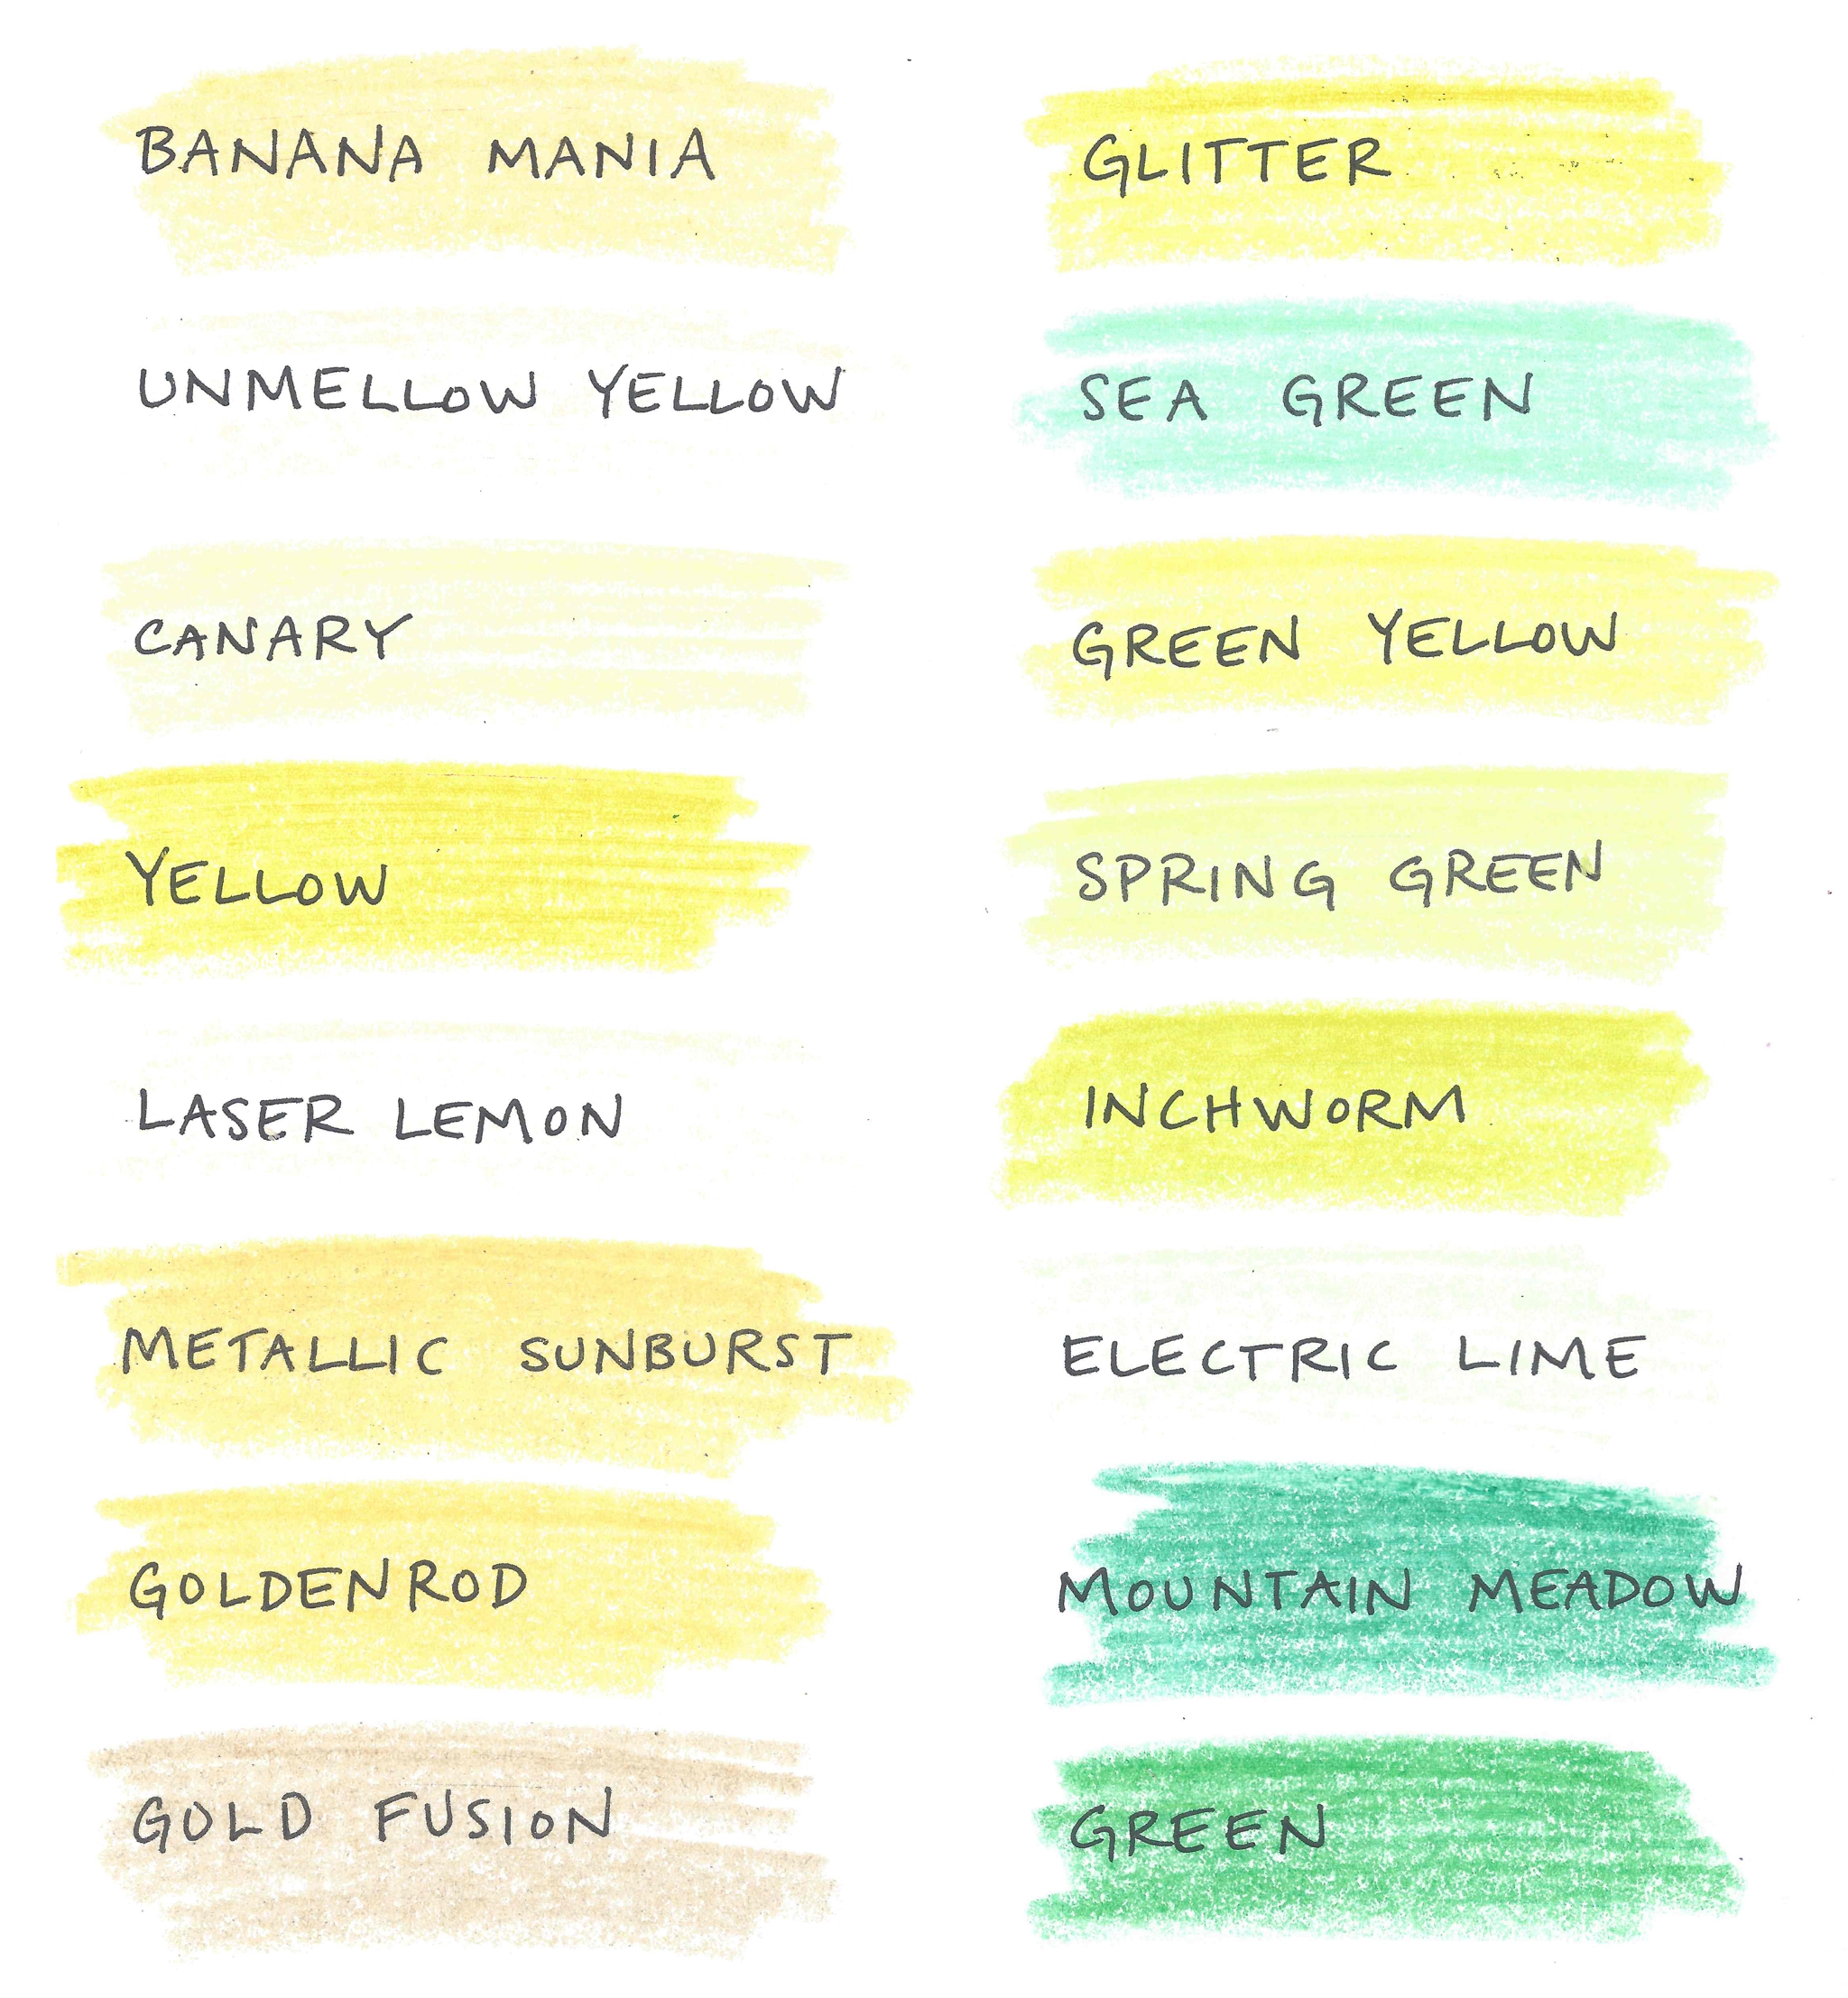 BANANA MANIA
UNMELLOW YELLOW
CANARY
YELLOW
LASER LEMON
METALLIC SUNBURST
GOLDENROD
GOLD FUSION
GLITTER
SEA GREEN
GREEN YELLOW
SPRING GREEN
INCHWORM
ELECTRIC LIME
MOUNTAIN MEADOW
GREEN